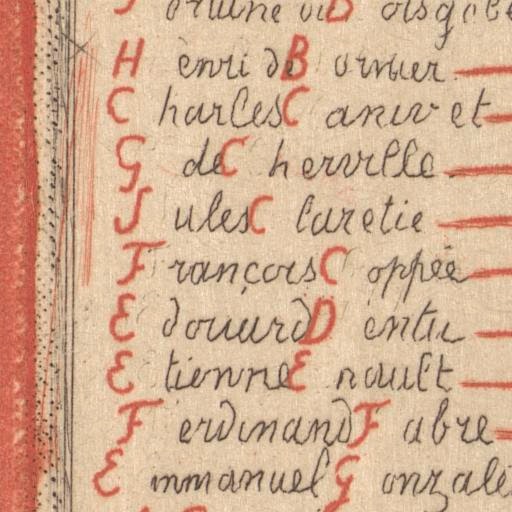 Henri de Bornier
Charles Canivet
G de Cherville
Jules Claretie
François Coppée
Edouard Dentu
Etienne Enault
Ferdinand Fabre
Emmanuel Gonzalè